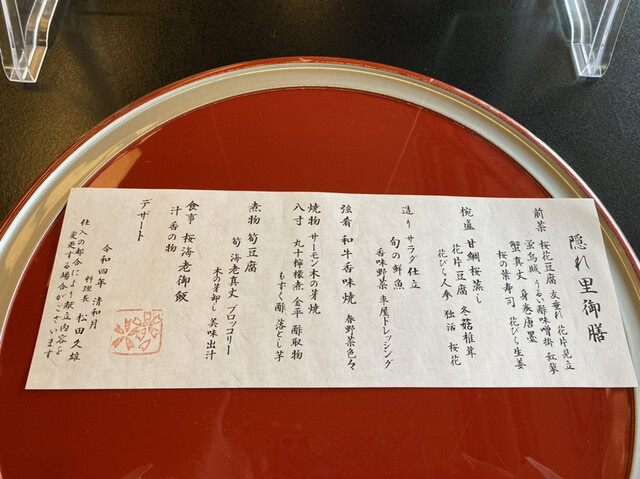 隠れ里御膳
前菜 桜花豆腐 友垂れ 花片見立
蛍烏賊 うるい酢味噌掛 紅蓼
蟹真丈 身巻唐墨
桜の葉寿司 花びら生姜
椀盛 甘鯛桜蒸し
花片豆腐 冬菇椎茸
花びら人参 独活 桜花
造り サラダ仕立
旬の鮮魚
香味野菜 車屋ドレッシング
強肴 和牛香味焼 春野菜色々
焼物 サーモン木の芽焼
八寸 丸十檸檬煮 金平 酢取物
もずく酢 落とし芋
煮物 筍豆腐
筍 海老真丈 ブロッコリー
木の芽卸し 美味出汁
食事 桜海老御飯
汁 香の物
デザート
令和四年 清和月
料理長 松田久雄
仕入の都合により献立内容を
変更する場合がございます